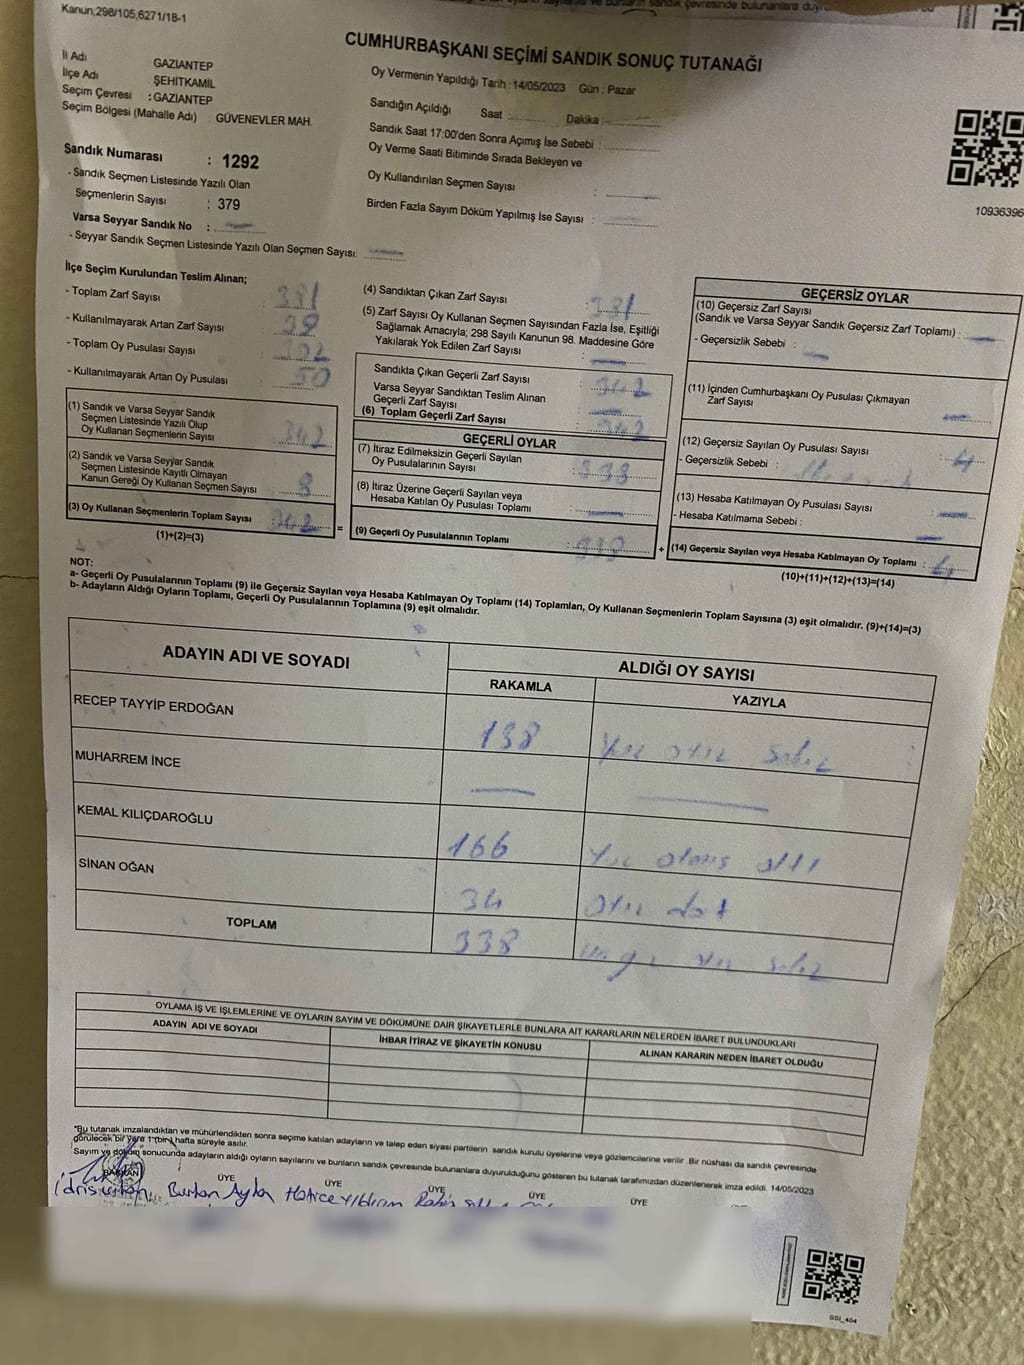 Kanun:298/105,6271/18-1
CUMHURBAŞKANI SEÇİMİ SANDIK SONUÇ TUTANAĞI
İl Adı GAZİANTEP
İlçe Adı ŞEHİTKAMİL
Seçim Çevresi : GAZİANTEP
Seçim Bölgesi (Mahalle Adı) : GÜVENEVLER MAH.
Oy Vermenin Yapıldığı Tarih : 14/05/2023 Gün : Pazar
Sandığın Açıldığı Saat : Dakika :
Sandık Saat 17:00'den Sonra Açımış İse Sebebi :
Oy Verme Saati Bitiminde Sırada Bekleyen ve
Oy Kullandırılan Seçmen Sayısı :
Birden Fazla Sayım Döküm Yapılmış İse Sayısı :
10936396
Sandık Numarası : 1292
- Sandık Seçmen Listesinde Yazılı Olan
Seçmenlerin Sayısı : 379
Varsa Seyyar Sandık No :
- Seyyar Sandık Seçmen Listesinde Yazılı Olan Seçmen Sayısı:
İlçe Seçim Kurulundan Teslim Alınan;
- Toplam Zarf Sayısı : 381
- Kullanılmayarak Artan Zarf Sayısı :
- Toplam Oy Pusulası Sayısı :
- Kullanılmayarak Artan Oy Pusulası : 50
(1) Sandık ve Varsa Seyyar Sandık
Seçmen Listesinde Yazılı Olup
Oy Kullanan Seçmenlerin Sayısı : 342
(2) Sandık ve Varsa Seyyar Sandık
Seçmen Listesinde Kayıtlı Olmayan
Kanun Gereği Oy Kullanan Seçmen Sayısı :
(3) Oy Kullanan Seçmenlerin Toplam Sayısı : 342
(1)+(2)=(3)
=
(4) Sandıktan Çıkan Zarf Sayısı :
(5) Zarf Sayısı Oy Kullanan Seçmen Sayısından Fazla İse, Eşitliği
Sağlamak Amacıyla; 298 Sayılı Kanunun 98. Maddesine Göre
Yakılarak Yok Edilen Zarf Sayısı :
Sandıkta Çıkan Geçerli Zarf Sayısı : 342
Varsa Seyyar Sandıktan Teslim Alınan
Geçerli Zarf Sayısı :
(6) Toplam Geçerli Zarf Sayısı : 342
GEÇERLİ OYLAR
(7) İtiraz Edilmeksizin Geçerli Sayılan
Oy Pusulalarının Sayısı : 338
(8) İtiraz Üzerine Geçerli Sayılan veya
Hesaba Katılan Oy Pusulası Toplamı :
(9) Geçerli Oy Pusulalarının Toplamı : 338
+
GEÇERSİZ OYLAR
(10) Geçersiz Zarf Sayısı
(Sandık ve Varsa Seyyar Sandık Geçersiz Zarf Toplamı) :
- Geçersizlik Sebebi :
(11) İçinden Cumhurbaşkanı Oy Pusulası Çıkmayan
Zarf Sayısı :
(12) Geçersiz Sayılan Oy Pusulası Sayısı : 4
- Geçersizlik Sebebi :
(13) Hesaba Katılmayan Oy Pusulası Sayısı :
- Hesaba Katılmama Sebebi :
(14) Geçersiz Sayılan veya Hesaba Katılmayan Oy Toplamı : 4
(10)+(11)+(12)+(13)=(14)
NOT:
a- Geçerli Oy Pusulalarının Toplamı (9) ile Geçersiz Sayılan veya Hesaba Katılmayan Oy Toplamı (14) Toplamları, Oy Kullanan Seçmenlerin Toplam Sayısına (3) eşit olmalıdır. (9)+(14)=(3)
b- Adayların Aldığı Oyların Toplamı, Geçerli Oy Pusulalarının Toplamına (9) eşit olmalıdır.
ADAYIN ADI VE SOYADI
ALDIĞI OY SAYISI
RAKAMLA YAZIYLA
RECEP TAYYİP ERDOĞAN 138 Yüz otuz sekiz
MUHARREM İNCE
KEMAL KILIÇDAROĞLU 166 Yüz altmış altı
SİNAN OĞAN 34 Otuz dört
TOPLAM 338 Üçyüz otuz sekiz
OYLAMA İŞ VE İŞLEMLERİNE VE OYLARIN SAYIM VE DÖKÜMÜNE DAİR ŞİKAYETLERLE BUNLARA AİT KARARLARIN NELERDEN İBARET BULUNDUKLARI
ADAYIN ADI VE SOYADI İHBAR İTİRAZ VE ŞİKAYETİN KONUSU ALINAN KARARIN NEDEN İBARET OLDUĞU
*Bu tutanak imzalandıktan ve mühürlendikten sonra seçime katılan adayların ve talep eden siyasi partilerin sandık kurulu üyelerine veya gözlemcilerine verilir .Bir nüshası da sandık çevresinde
görülecek bir yere 1 (bir) hafta süreyle asılır.
Sayım ve döküm sonucunda adayların aldığı oyların sayılarını ve bunların sandık çevresinde bulunanlara duyurulduğunu gösteren bu tutanak tarafımızdan düzenlenerek imza edildi. 14/05/2023
BAŞKAN ÜYE ÜYE ÜYE ÜYE ÜYE
Burhan Hatice Yıldırım
SSI_404